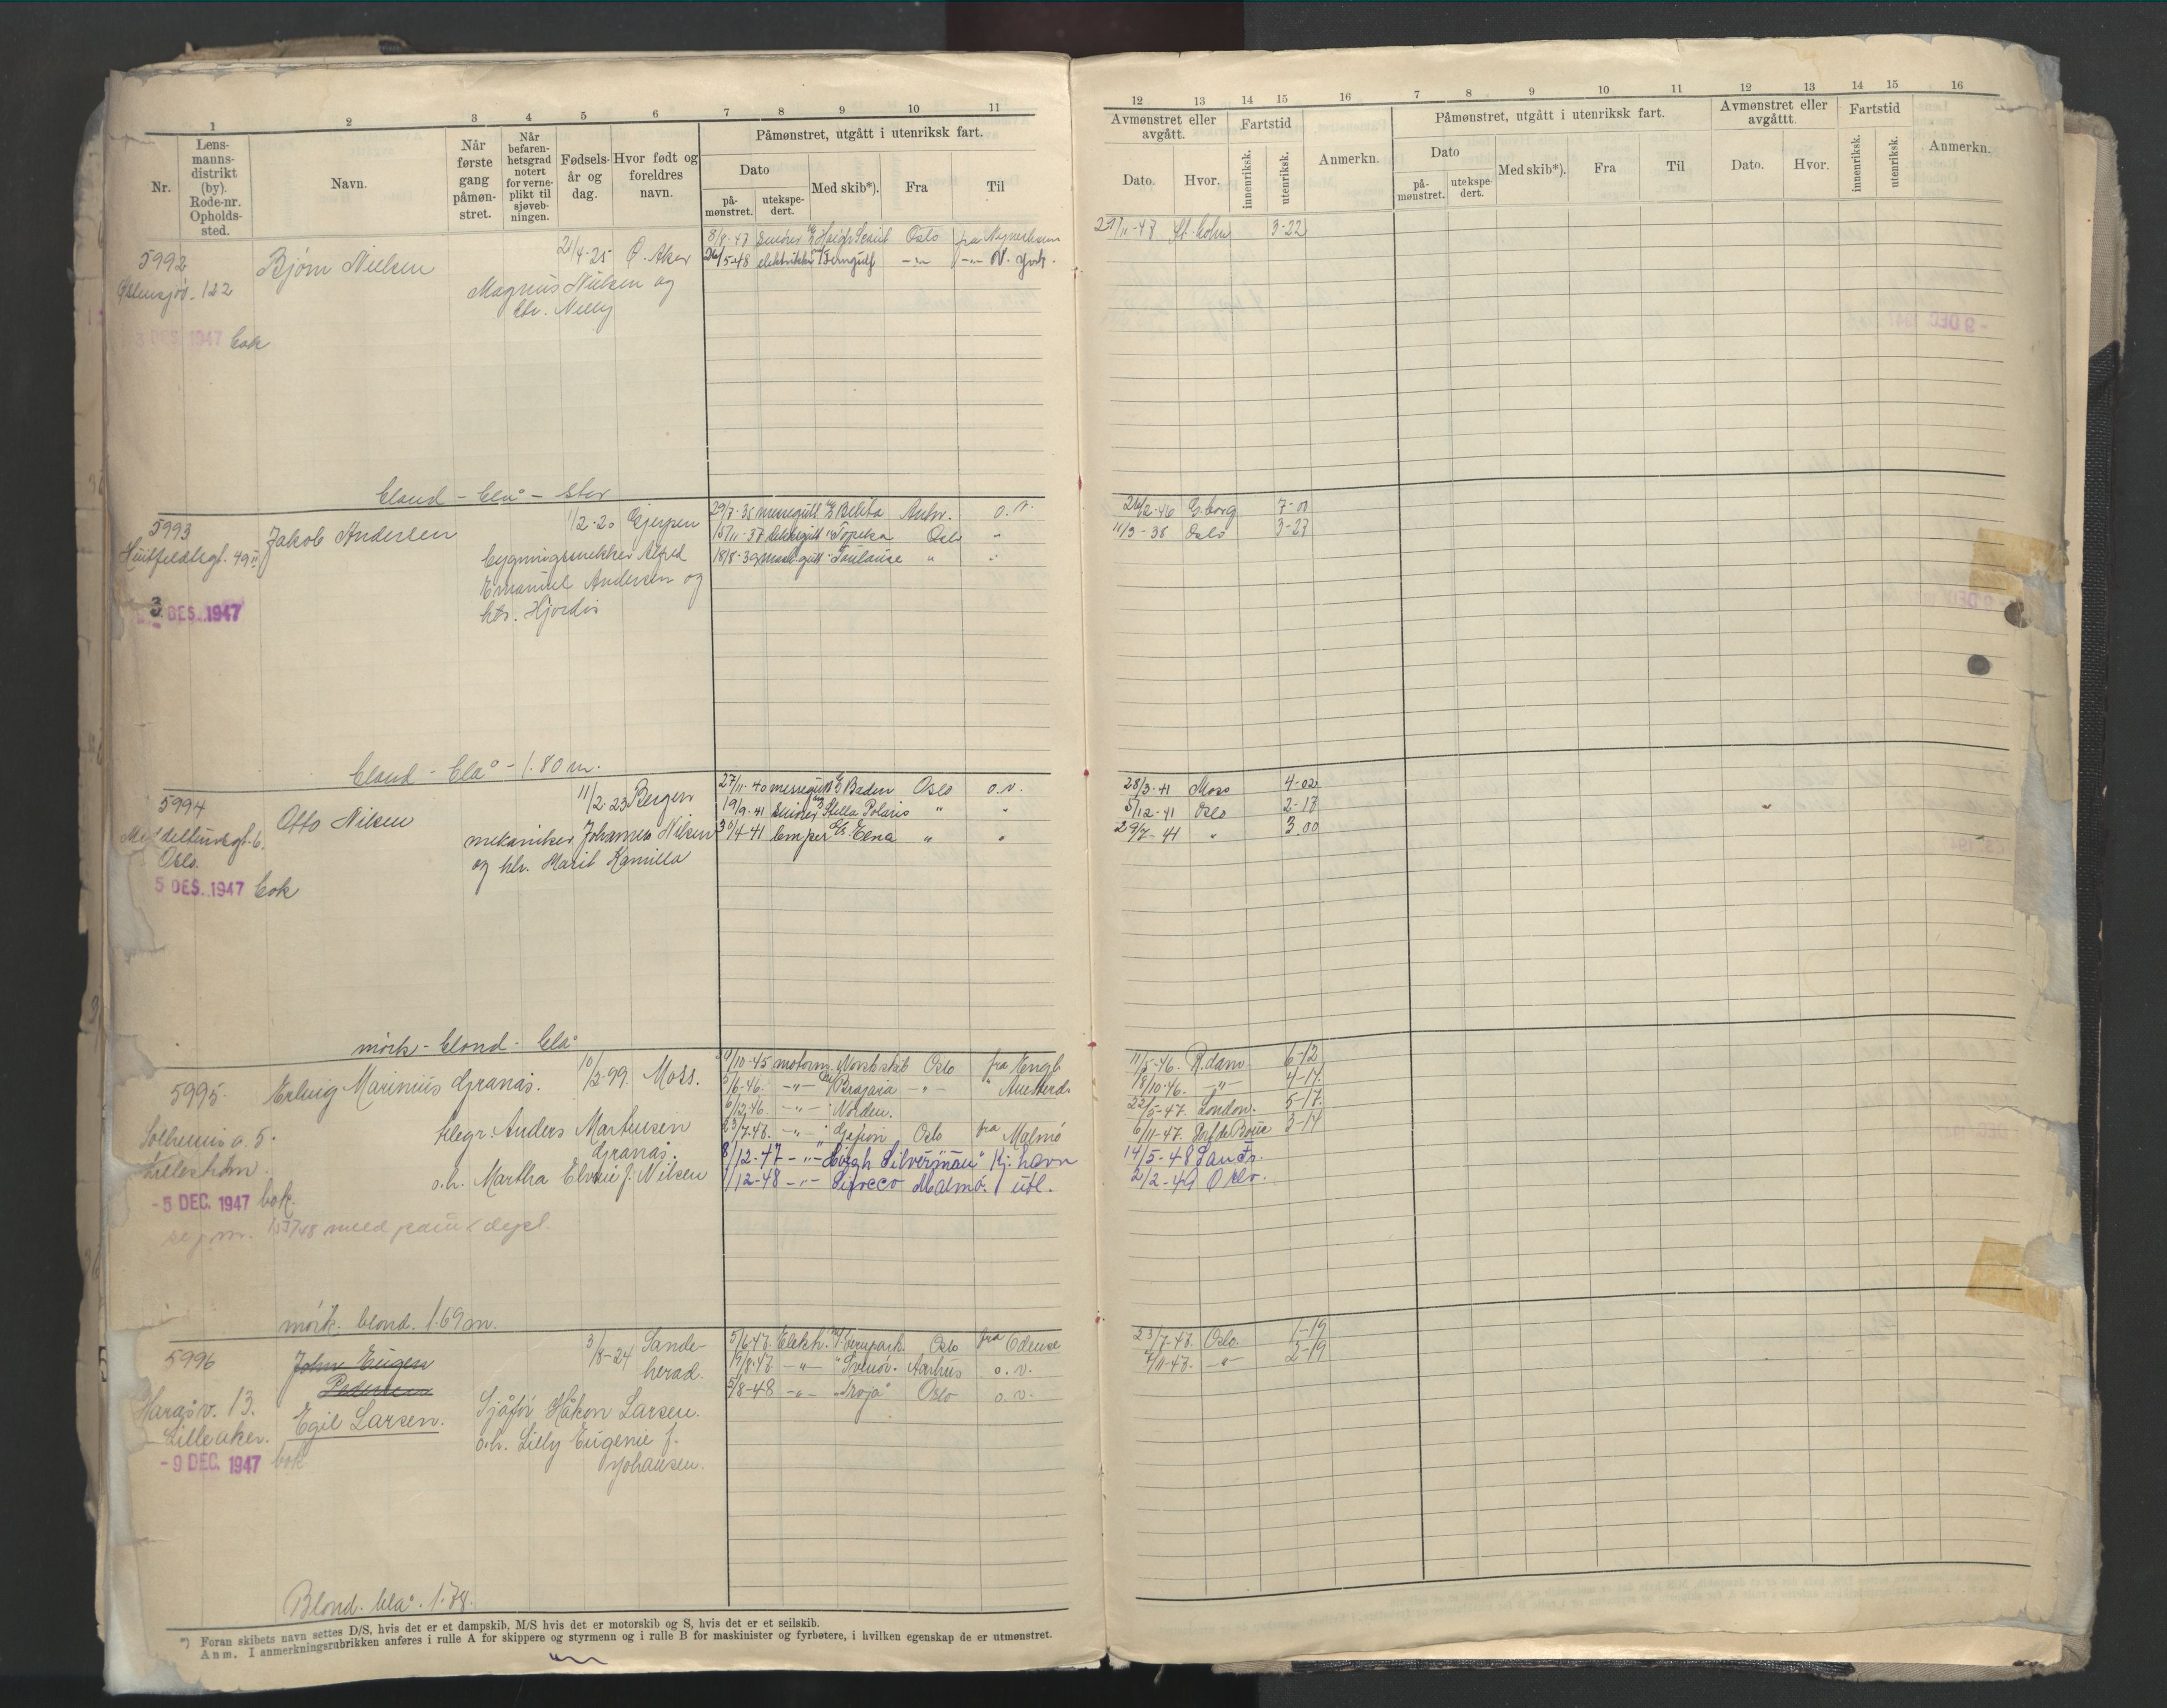 1 2 3 4 5 6 7 8 9 10 11
Nr.
Lens-
manns-
distrikt
(by).
Rode-nr.
Opholds-
sted.
Navn.
Når
første
gang
påmøn-
stret.
Når
befaren-
hetsgrad
notert
for verne-
plikt til
sjøveb-
ningen.
Fødsels-
år og
dag.
Hvor født og
foreldres
navn.
Påmønstret, utgått i utenriksk fart.
Dato
på-
mønstret.
utekspe-
dert.
Med skib*).
Fra
Til
5992
Østensjøv. 122
3 DES. 1947 bok
Bjørn Nielsen
21/4-25 Ø. Aker
Magnus Nielsen og
htr. Nelly
8/8-47 Oslo fra
26/5-48 elektriker Ferngulf -"- -"- N. York.
blond - blå - stor
5993
Huitfeldtsgt. 49 II
3 DES. 1947
Jakob Andersen
1/2-20 Gjerpen
bygningssnekker Alfred
Emanuel Andersen og
htr. Hjørdis
29/7-35 messegutt Belita Antw. o.v.
15/11-37 dekksgutt " Topeka Oslo "
18/8-39 " Toulouse " "
blond - blå - 1.80 m.
5994
Middelthunsgt. 6.
Oslo.
5 DES. 1947 bok
Otto Nilsen
11/2-23 Bergen
mekaniker Johannes Nilsen
og htr. Marit Kamilla
27/11-40 messegutt Baden Oslo o.v.
19/9-41 Stella Polaris " "
30/4-41 Elna " "
mørk - blond - blå
5995.
Solheimsv. 5.
Lillestrøm.
-5 DEC. 1947 bok.
Erling Marinius Granås.
10/2-99. Moss.
telegr. Anders Martinsen
Granås.
o.h. Martha Elvine f. Nilsen
/10-45 motorm. Norsk skib Oslo fra Engl.
5/6-46. -"- Bragaria -"- " Amsterd.
6/12-46. -"- " Norden.
23/7-47. -"- " Gefion Oslo fra Malmö
8/12-47 -"- Høegh Silvermoon" Kj.havn
1/12-48 -"- Sirocco Malmö. utl.
mörk. blond. 1.69 m.
5996
Harasv. 13.
Lilleaker.
-9 DEC. 1947 bok
John Eugen
Pedersen
Egil Larsen.
3/8-24 Sande-
herad.
Sjåfør Håkon Larsen.
o.h. Lilly Eugenie f.
Johansen.
5/6-47. Elektr. Fernpark. Oslo fra Odense
19/8-47. -"- " Svenör. Aarhus o.v.
5/8-48 -"- " Troja" Oslo o.v.
Blond. blå. 1.78.
*) Foran skibets navn settes D/S, hvis det er et dampskib, M/S hvis det er motorskib og S, hvis det er et seilskib.
Anm. I anmerkningsrubrikken anføres i rulle A for skippere og styrmenn og i rulle B for maskinister og fyrbøtere, i hvilken egenskap de er utmønstret.
12 13 14 15 16 7 8 9 10 11 12 13 14 15 16
Avmønstret eller
avgått.
Dato.
Hvor.
Fartstid
innenriksk.
utenriksk.
Anmerkn.
Påmønstret, utgått i utenriksk fart.
Dato
på-
mønstret.
utekspe-
dert.
Med skib*).
Fra
Til
Avmønstret eller
avgåttt.
Dato.
Hvor.
Fartstid
innenriksk.
utenriksk.
Anmerkn.
29/11-47 St.holm 3-22
26/2-46 G.borg 7-01
11/3-38 Oslo 3-27
28/3-41 Moss 4-02
5/12-41 Oslo 2-17
29/7-41 " 3.00
11/5-46. R.dam. 6-12
18/10-46. -"- 4-14.
22/5-47. London. 5-17.
6/11-47. Port de Bouc 3-14
14/5-48 San Fr.
2/2-49 Oslo.
23/7-47. Oslo. 1-19
7/11-47. -"- 2-19